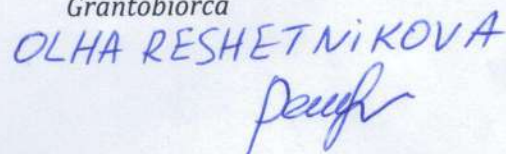 Grantobiorca
OLHA RESHETNiKOVA